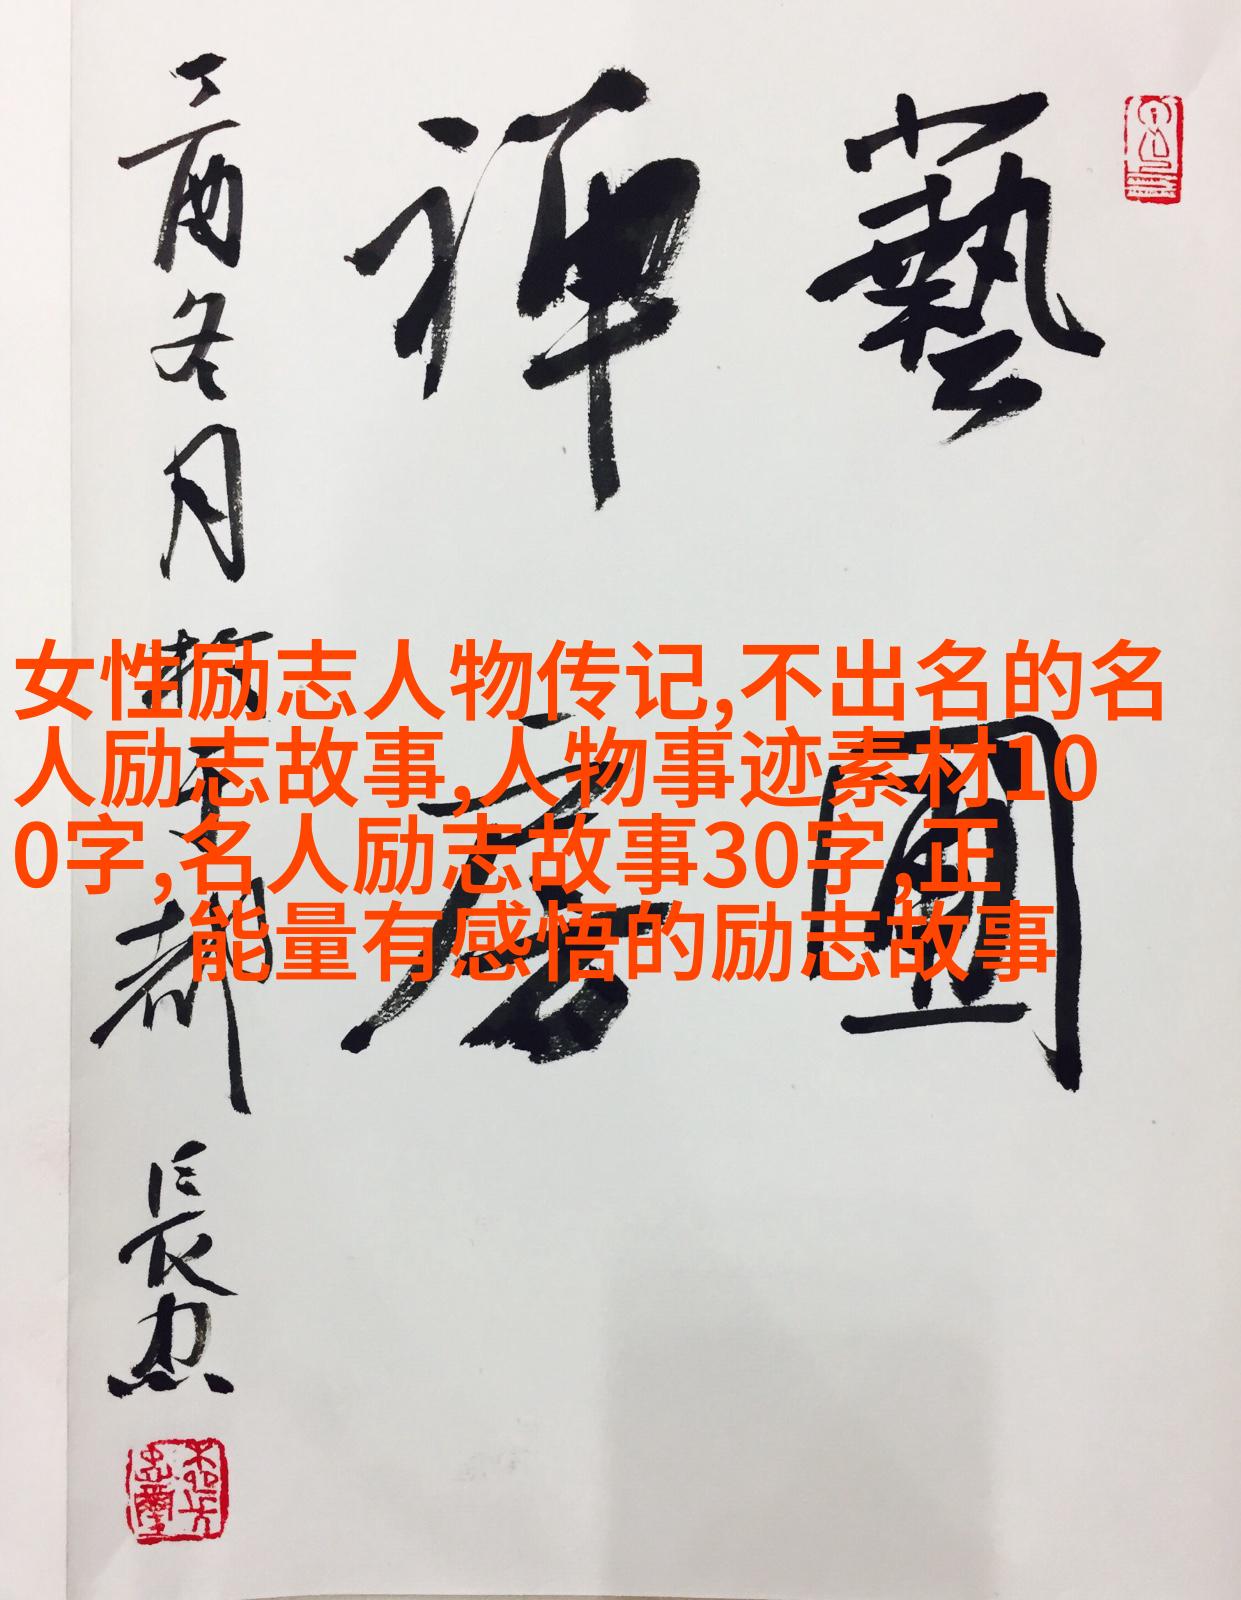 藝圃
禅房
丁酉冬月於
都
長忠
女性励志人物传记,不出名的名
人励志故事,人物事迹素材10
0字,名人励志故事30字,正
能量有感悟的励志故事